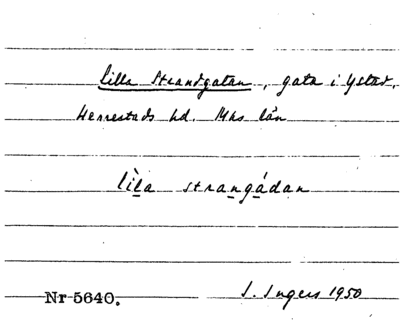 Lilla Strandgatan, gata i Ystad,
Herrestads hd. Mhs län
lìla strangádan
Nr 5640. I. Ingers 1950